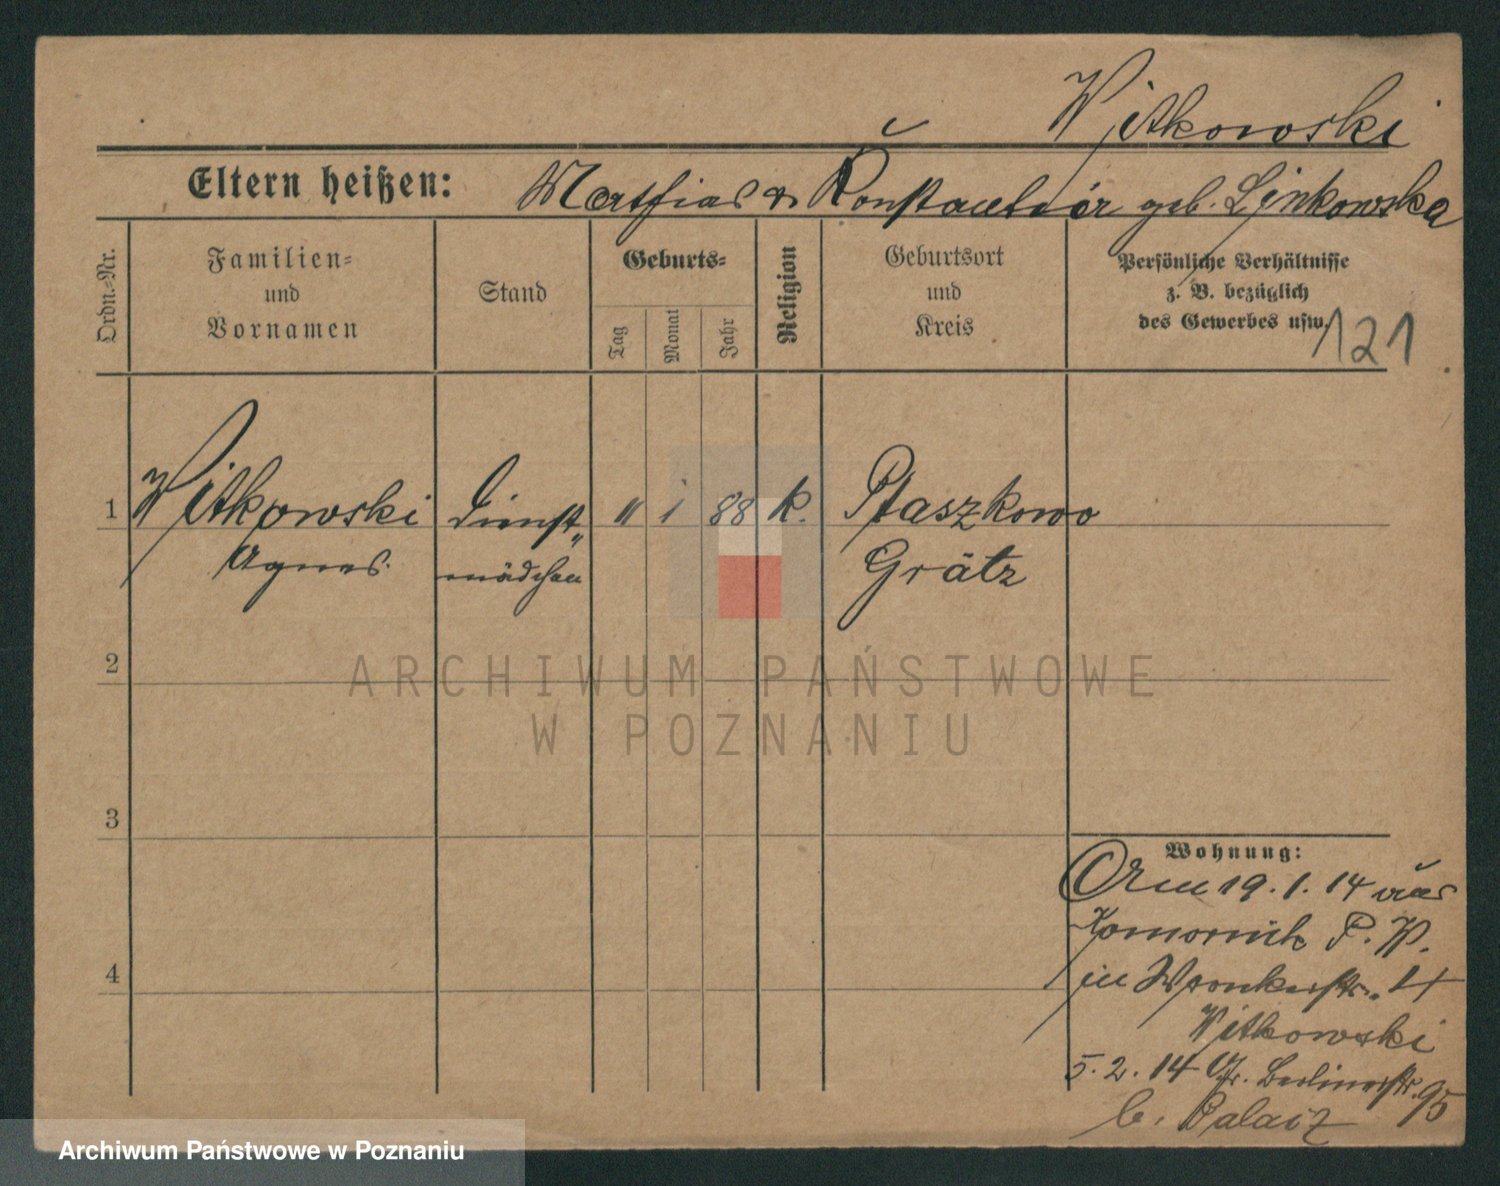 Witkowski
Eltern heißen: Mathias & Konstantia geb. Linkowska
Ordn.-Nr.
Familien-
und
Vornamen
Stand
Geburts-
Tag
Monat
Jahr
Religion
Geburtsort
und
Kreis
Persönliche Verhältnisse
z. B. bezüglich
des Gewerbes usw.
121
1 Witkowski Dienst- 11 1 88 k. Ptaszkowo
Agnes. mädchen Grätz
2
3
4
Wohnung:
Am 19.1.14 aus
Komornik P. W.
in Wronkerstr. 4
Witkowski
5.2.14 Gr. Berlinerstr. 95
b. Palacz
ARCHIWUM PAŃSTWOWE
W POZNANIU
Archiwum Państwowe w Poznaniu